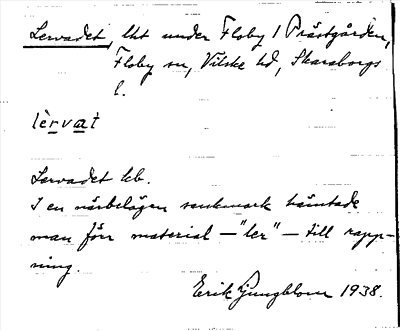 Lervadet, lht under Floby 1 Prästgården,
Floby sn, Vilske hd, Skaraborgs
l.
lèrvat
Lervadet leb.
I en närbelägen sankmark hämtade
man förr material — "ler" — till rapp-
ning.
Erik Ljungblom 1938.